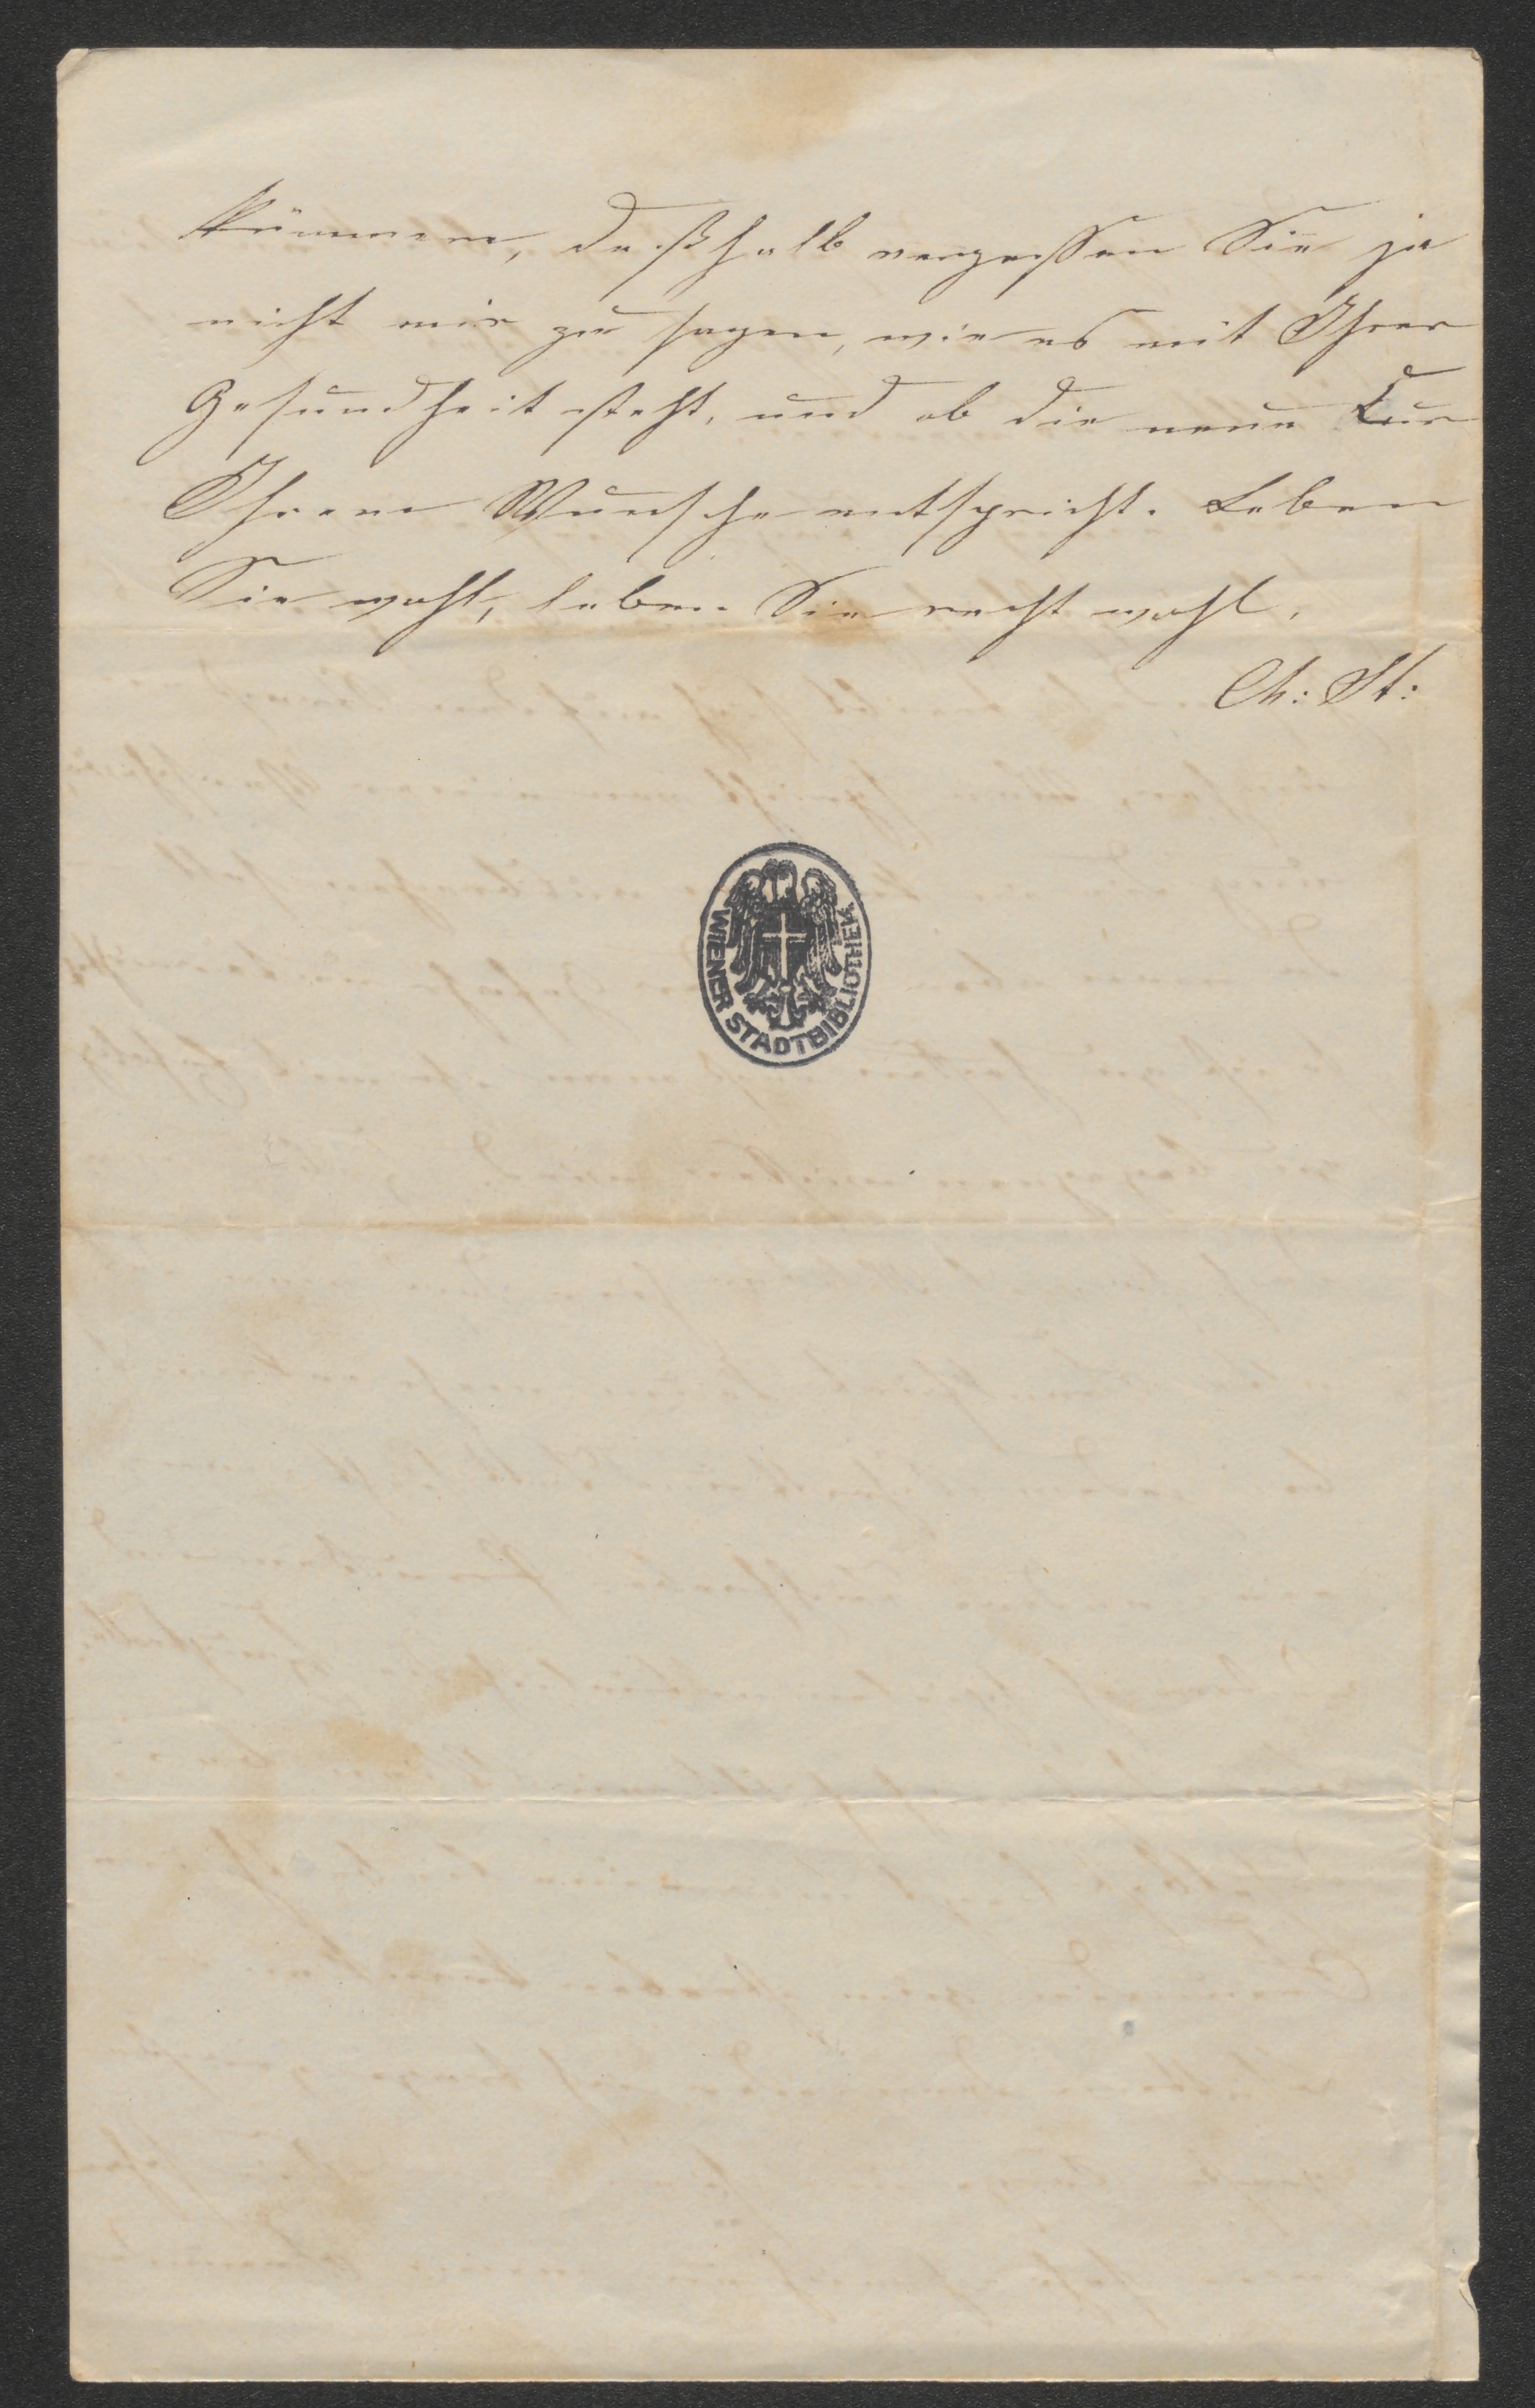 kümmern, deßhalb vergessen Sie ja
nicht mir zu sagen, wie es mit Ihrer
Gesundheit steht, und ob die neue Kur
Ihrem Wunsche entspricht. Leben
Sie wohl, leben Sie recht wohl.
Ch: St:
WIENER STADTBIBLIOTHEK